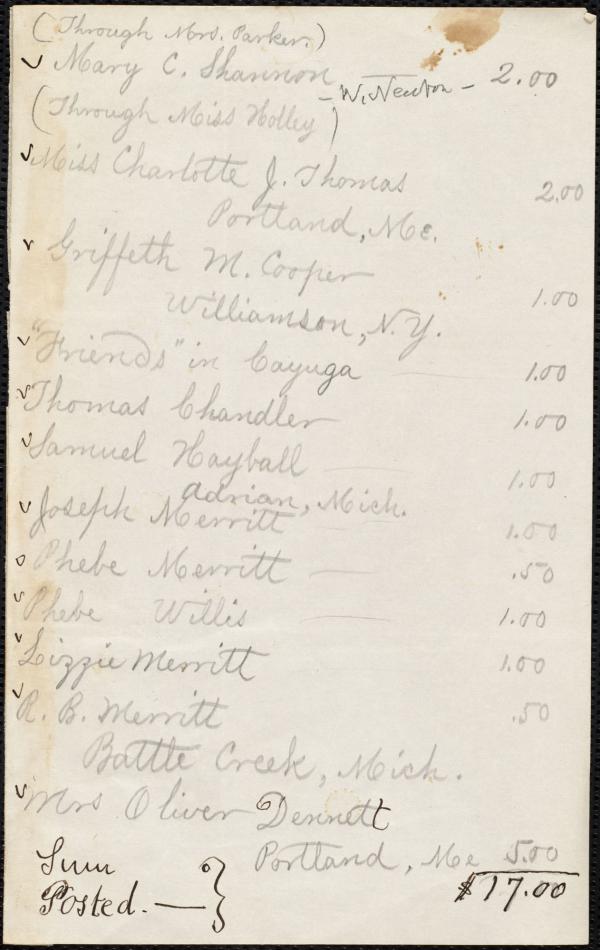 (Through Mrs. Parker.)
✓ Mary C. Shannon - W. Newton - 2.00
(Through Miss Holley)
✓ Miss Charlotte J. Thomas 2.00
Portland, Me.
✓ Griffeth M. Cooper
Williamson, N.Y. 1.00
✓ "Friends" in Cayuga 1.00
✓ Thomas Chandler 1.00
✓ Samuel Hayball 1.00
Adrian, Mich.
✓ Joseph Merritt 1.00
o Phebe Merritt .50
✓ Phebe Willis 1.00
✓ Lizzie Merritt 1.00
✓ R. B. Merritt .50
Battle Creek, Mich.
✓ Mrs Oliver Dennett
Portland, Me 5.00
Sum
Posted. — } $17.00